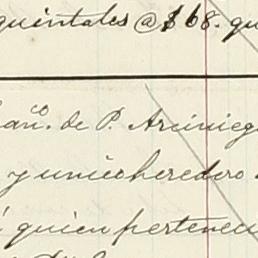 quintales @ $68. qu
anco. de P. Arciniega
y unico heredero
á quien pertenec